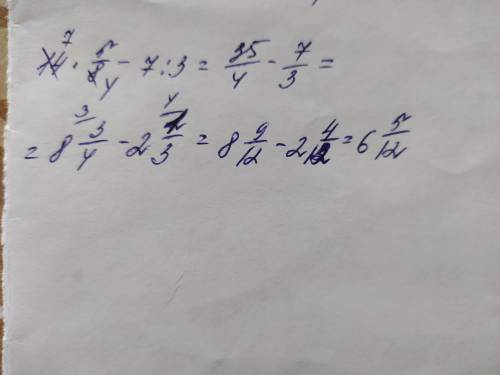 14 · 5/8 - 7 : 3 = 35/4 - 7/3 =
= 8 3/4 - 2 1/3 = 8 9/12 - 2 4/12 = 6 5/12